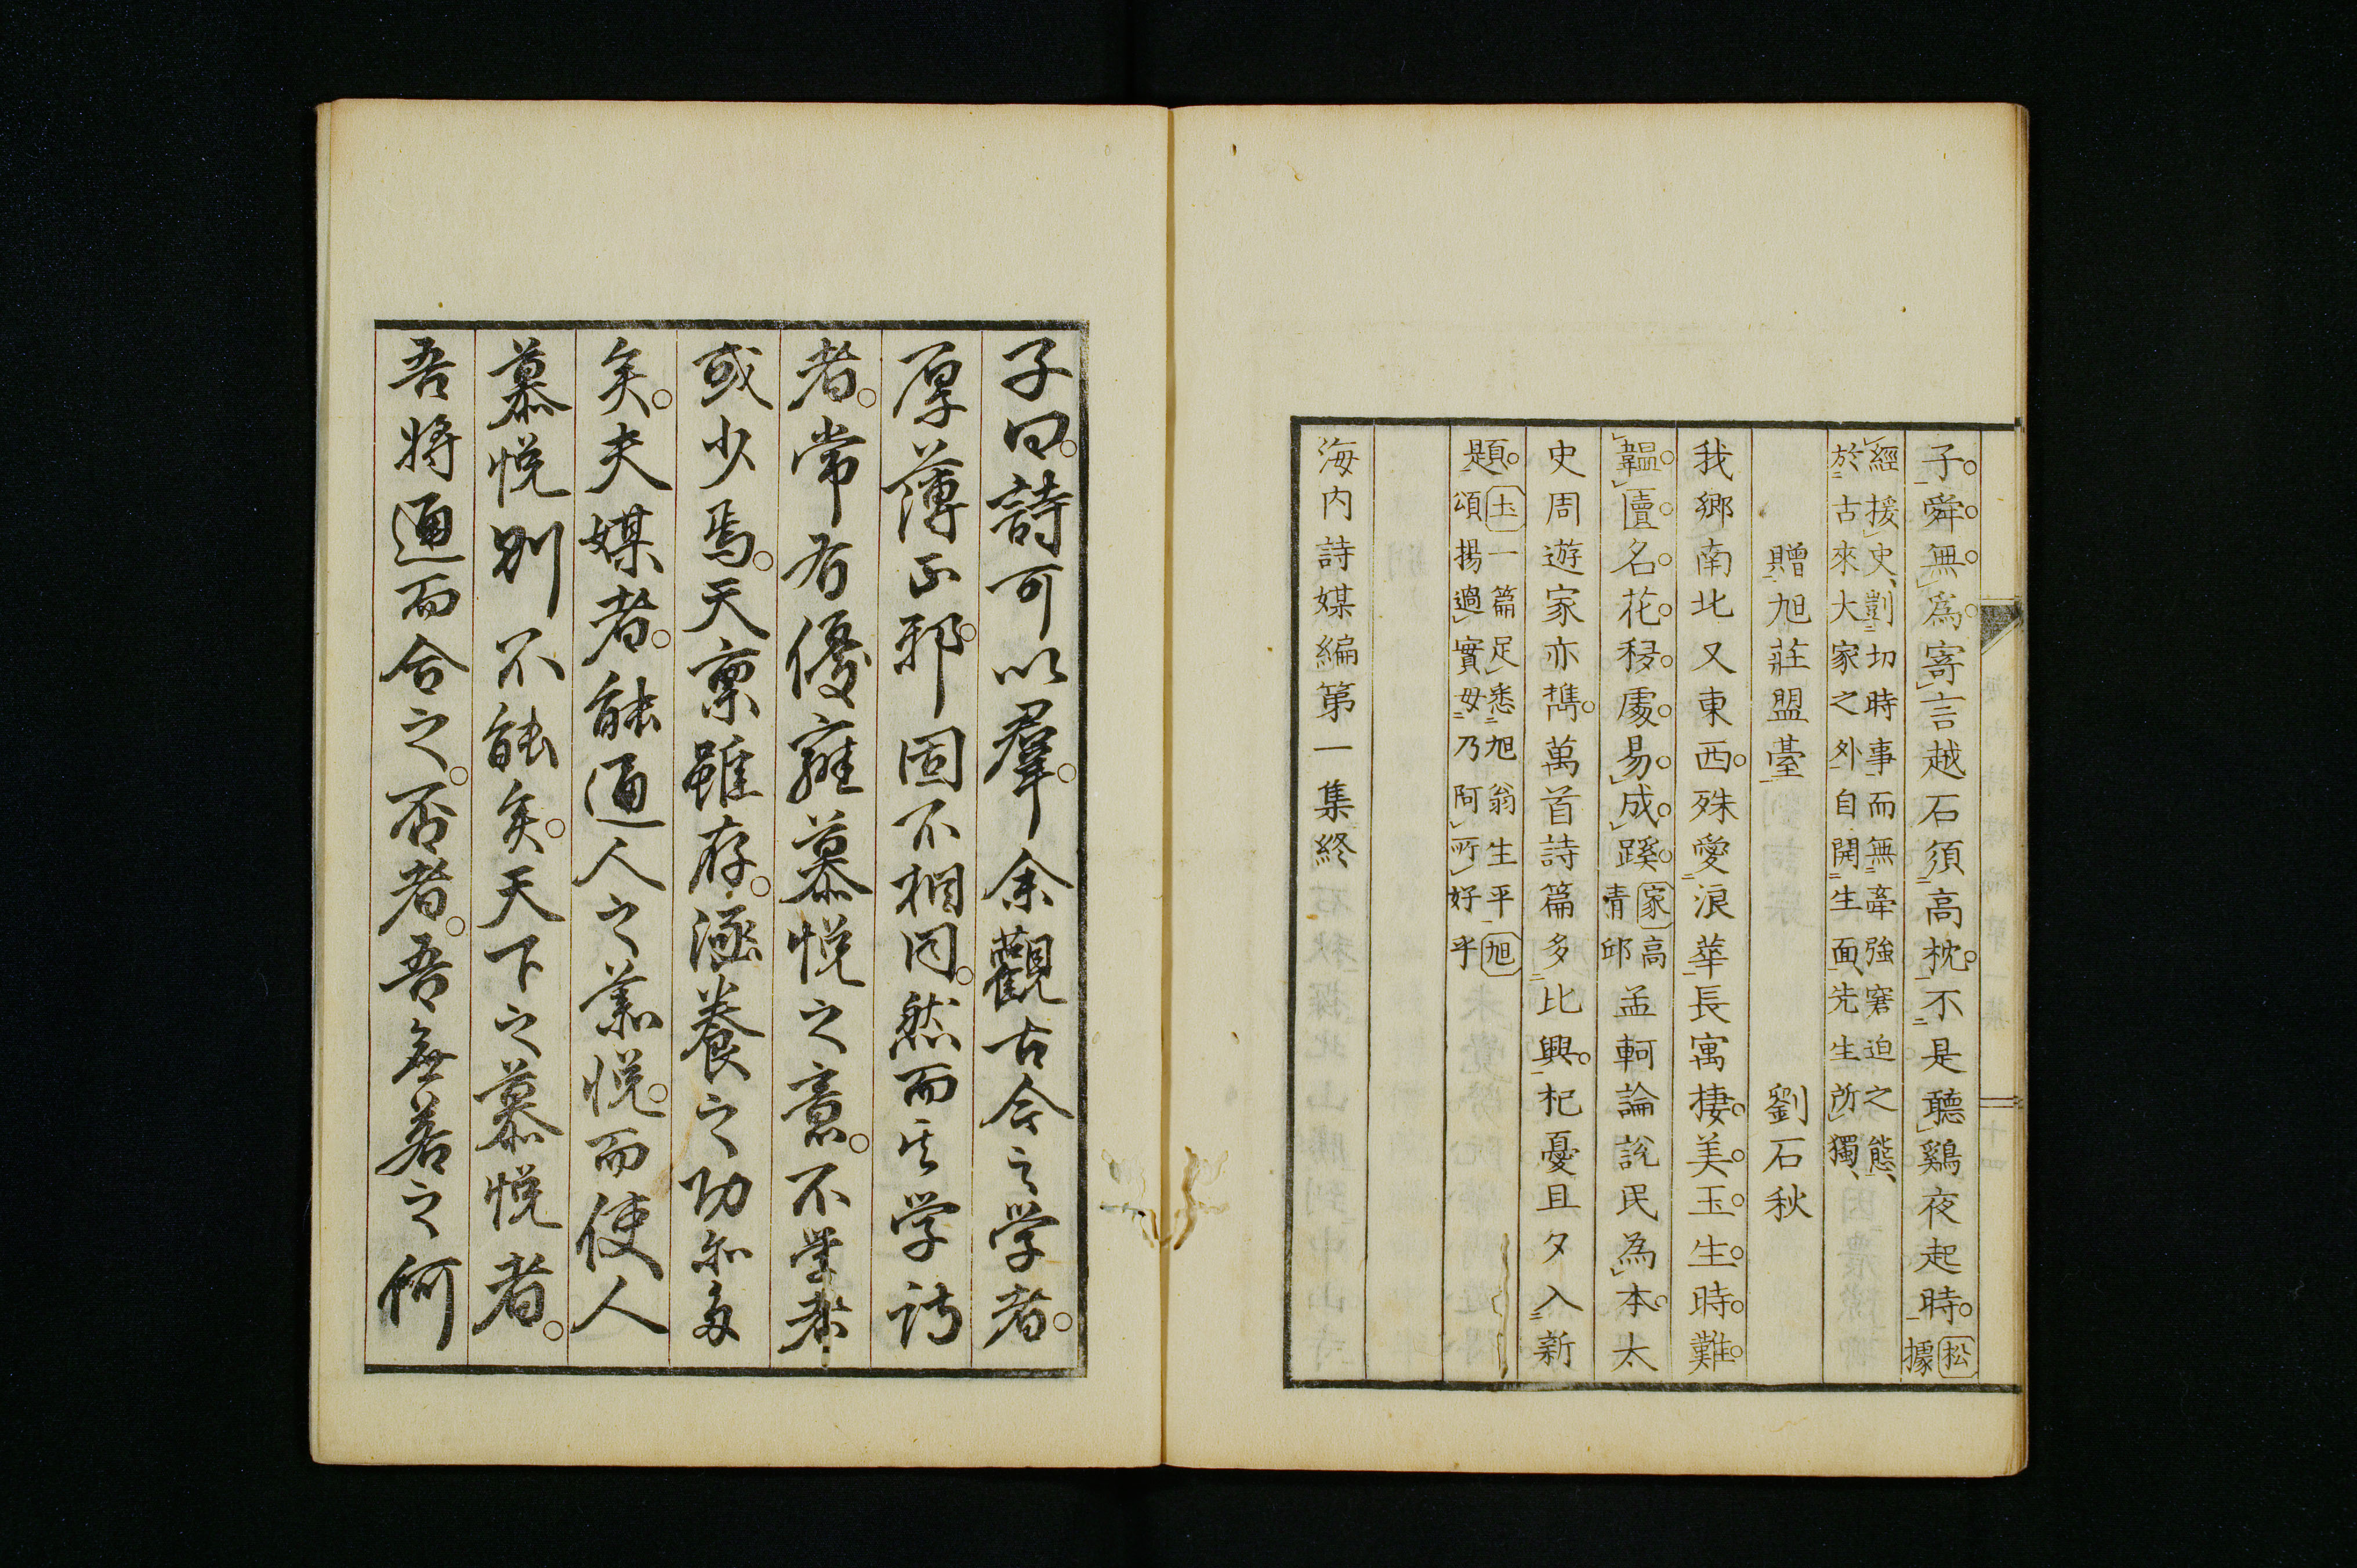 子舜無爲寄言越石須高枕不是聽鷄夜起時松據
經援史剴切時事而無牽強窘迫之態
於古來大家之外自開生面先生所獨
贈旭莊盟臺 劉石秋
我鄉南北又東西殊愛浪華長寓棲美玉生時難
韞匵名花移處易成蹊家高青邱孟軻論說民為本太
史周遊家亦擕萬首詩篇多比興杞憂且夕入新
題玉一篇足悉旭翁生平旭
頌揚過實毋乃阿所好乎
海内詩媒編第一集終
子曰詩可以羣余觀古今之学者
厚薄正邪固不相同然而其学詩
者常有優
慕悦之意不
或少焉天稟雖存涵養之功
矣夫媒者能通人之慕悦而使人
慕悦別不能矣天下之慕悦者
吾將通而合之否者吾無若之何